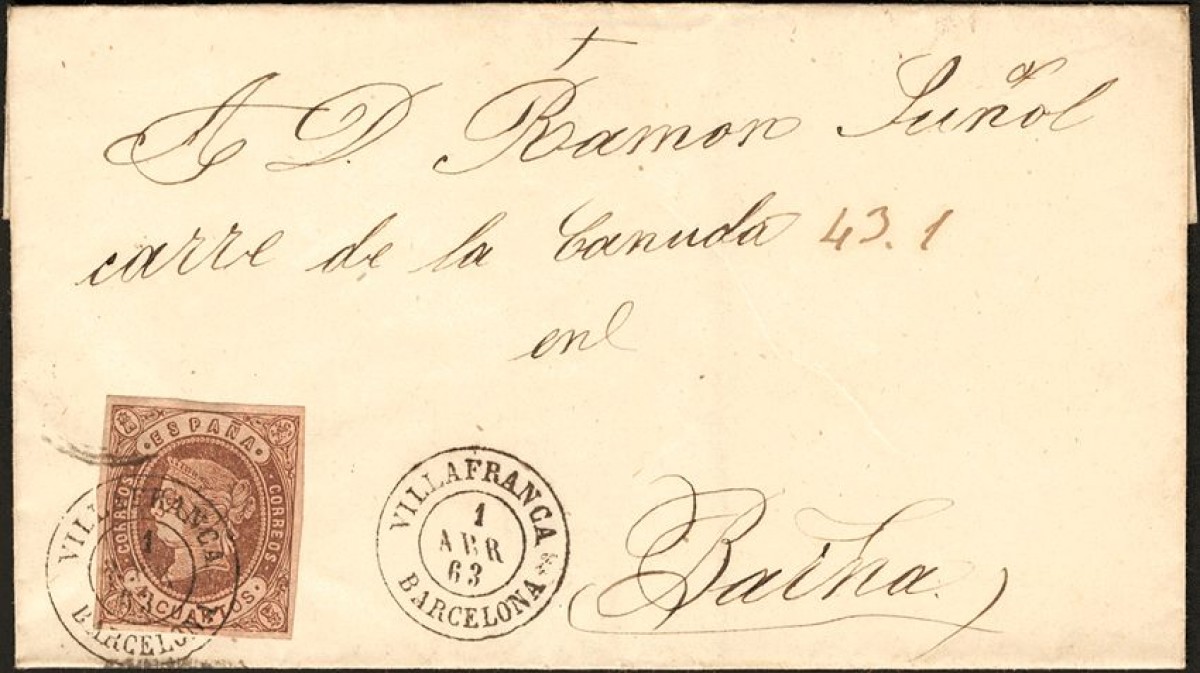 A D. Ramon Suñol
carre de la Canuda 43.1
en
Barna
ESPAÑA
CORREOS
CORREOS
CUARTOS
VILLAFRANCA
1
63
BARCELONA
VILLAFRANCA
1
ABR
63
BARCELONA